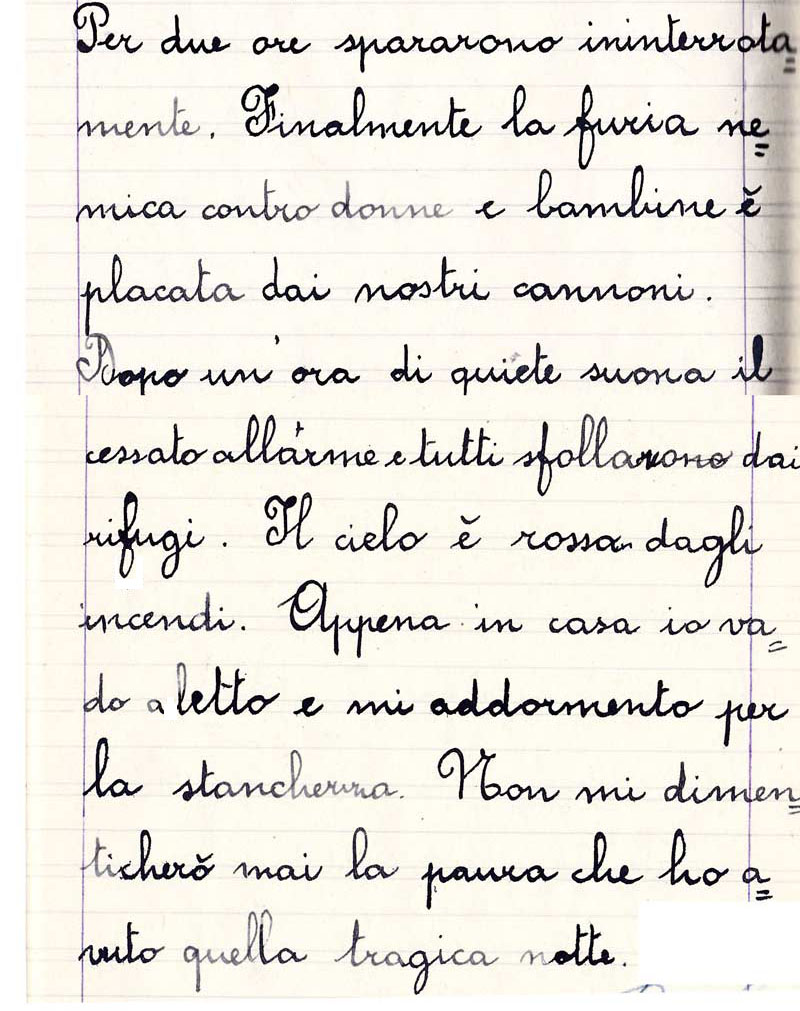 Per due ore spararono ininterrota=
mente. Finalmente la furia ne=
mica contro donne e bambine è
placata dai nostri cannoni.
Dopo un'ora di quiete suona il
cessato allarme e tutti sfollarono dai
rifugi. Il cielo è rosso dagli
incendi. Appena in casa io va=
do a letto e mi addormento per
la stanchezza. Non mi dimen=
ticherò mai la paura che ho a=
vuto quella tragica notte.